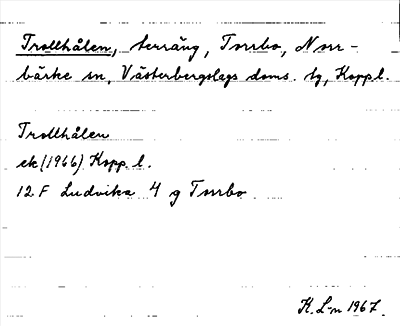 Trollhålen, terräng, Torrbo, Norr-
bärke sn, Västerbergslags doms. tg, Koppl.
Trollhålen
ek (1966) Kopp. l.
12 F Ludvika 4 g Torrbo
K. L-n 1967.